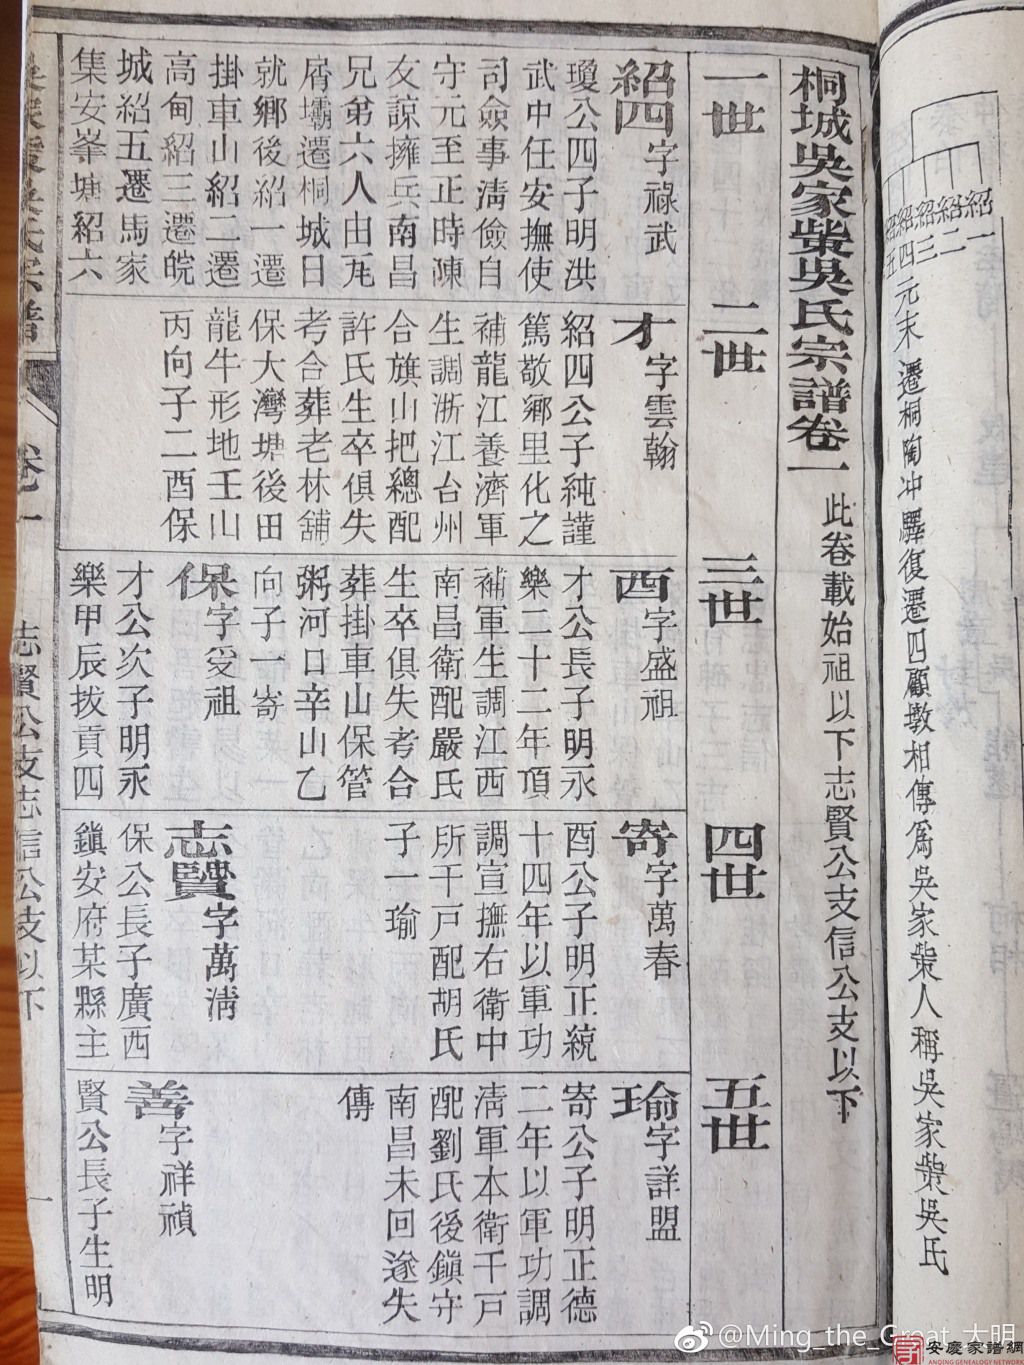 紹一
紹二
紹三
紹四
元末遷桐陶冲驛復遷四顧墩相傳爲吳家紫人稱吳家紫吳氏
桐城吳家紫吳氏宗譜卷一
此卷載始祖以下志賢公支信公支以下
一世
二世
三世
四世
五世
紹四字祿武
瓊公四子明洪
武中任安撫使
司僉事淸儉自
守元至正時陳
友諒擁兵南昌
兄弟六人由瓦
屑壩遷桐城日
就鄉後紹一遷
掛車山紹二遷
高甸紹三遷皖
城紹五遷馬家
集安峯塘紹六
才字雲翰
紹四公子純謹
篤敬鄉里化之
補龍江養濟軍
生調浙江台州
合旗山把總配
許氏生卒俱失
考合葬老林舖
保大灣塘後田
龍牛形地壬山
丙向子二酉保
酉字盛祖
才公長子明永
樂二十二年頂
補軍生調江西
南昌衛配嚴氏
生卒俱失考合
葬掛車山保管
粥河口辛山乙
向子一寄
保字受祖
才公次子明永
樂甲辰拨貢四
寄字萬春
酉公子明正統
十四年以軍功
調宣撫右衛中
所千戸配胡氏
子一瑜
志賢字萬淸
保公長子廣西
鎮安府某縣主
瑜字詳盟
寄公子明正德
二年以軍功調
淸軍本衛千戸
配劉氏後鎮守
南昌未回遂失
傳
善字祥禎
賢公長子生明
卷一
志賢公支志信公支以下
一
@Ming_the_Great_大明
安慶家譜網
ANQING GENEALOGY NETWORK